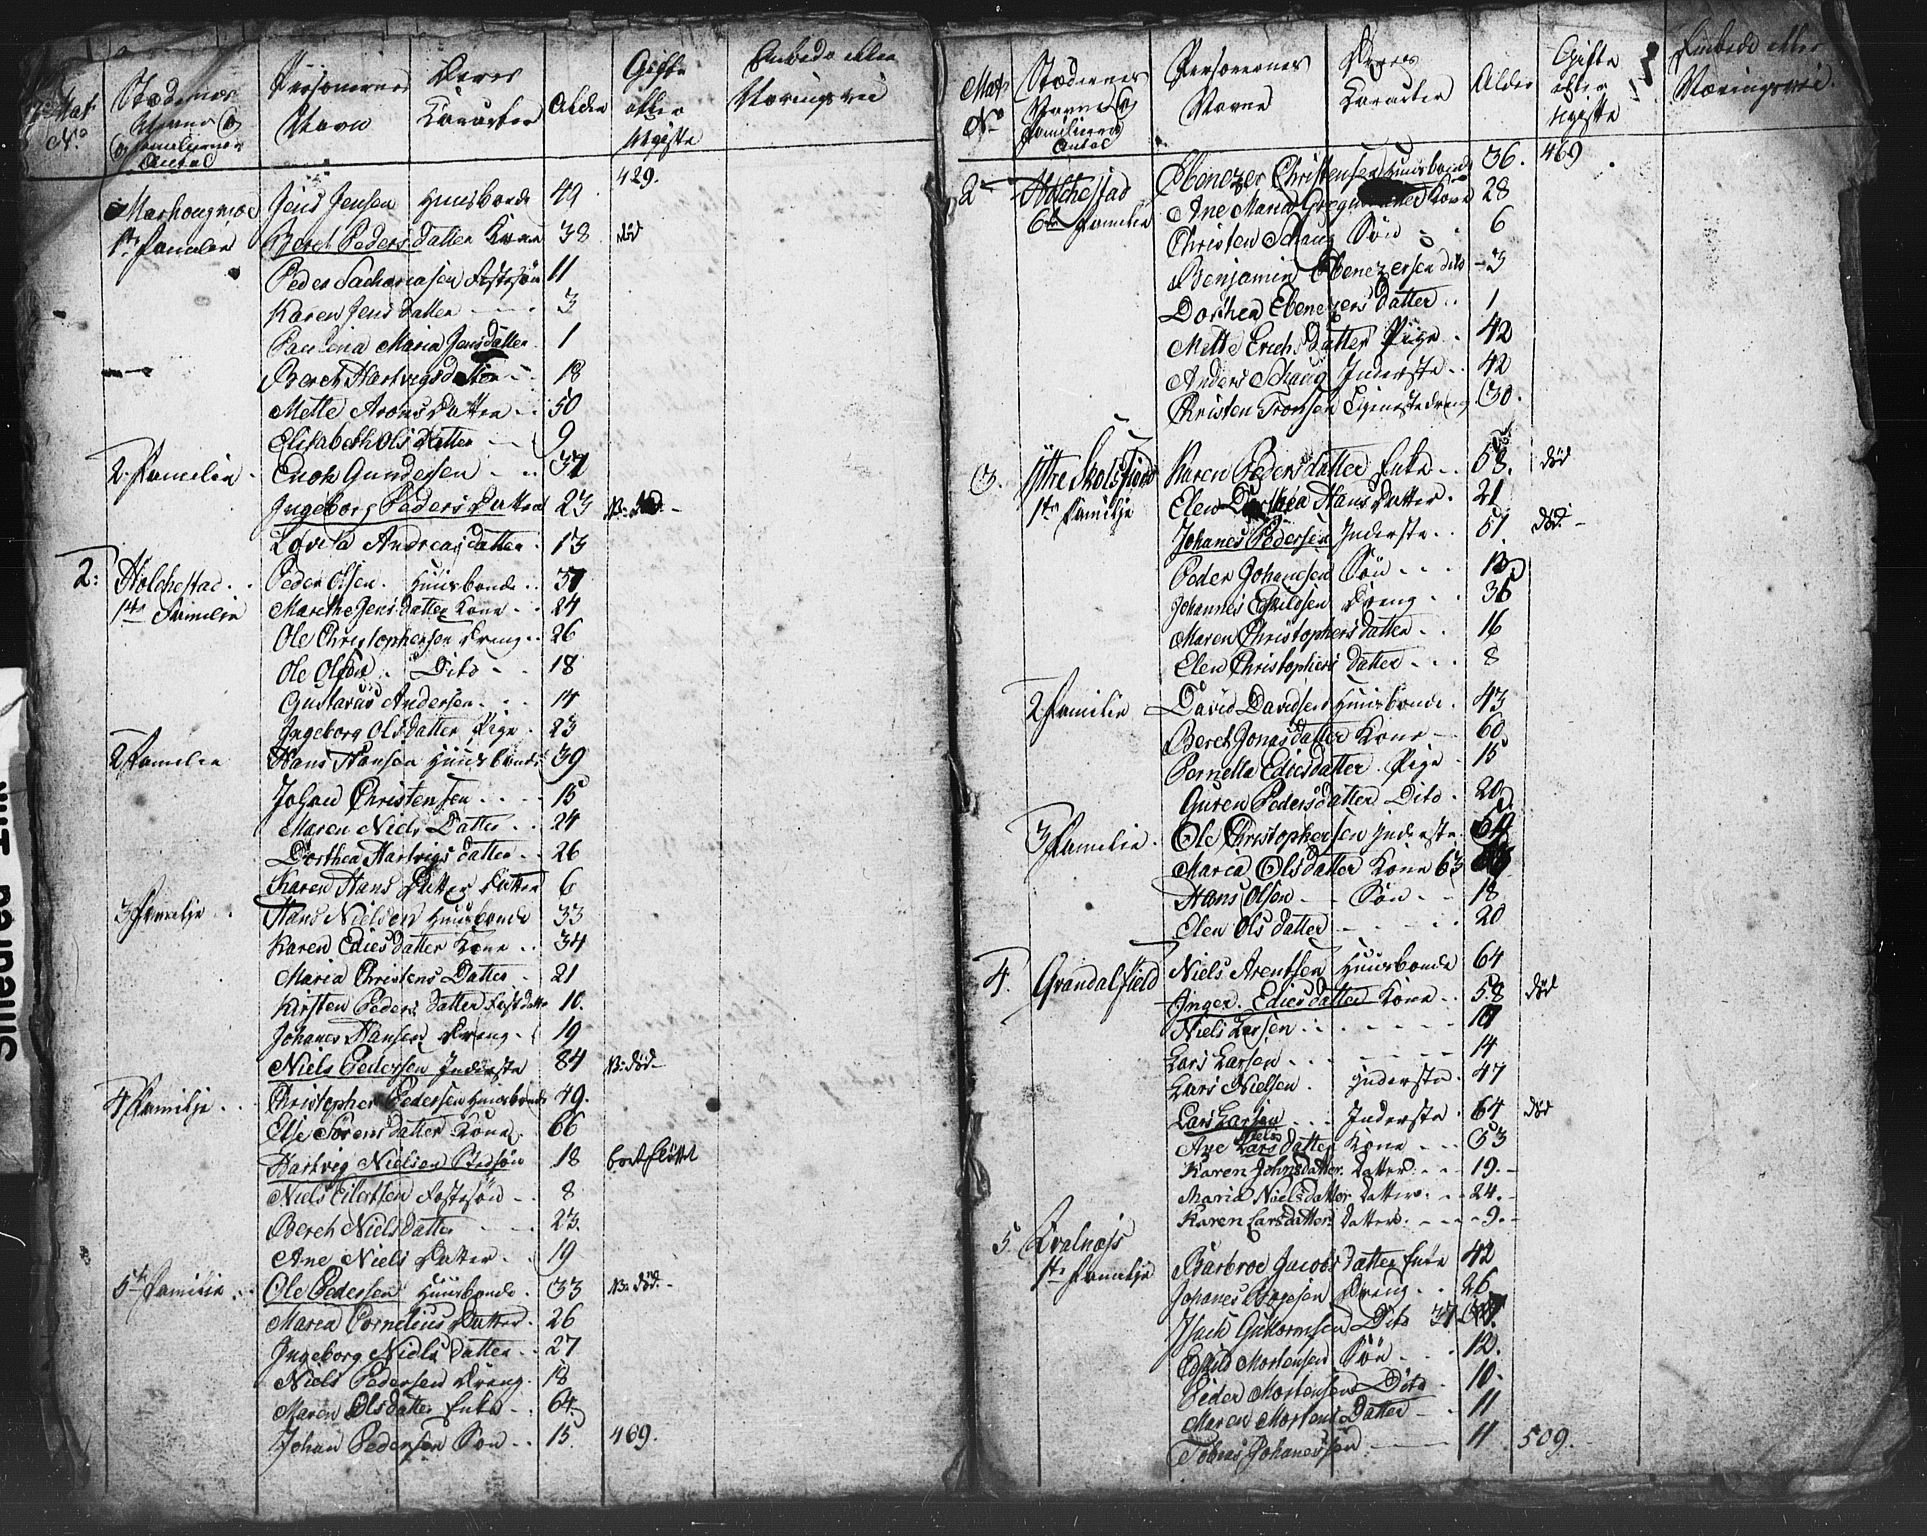 Mat No
Stædernes Navne og Familiernes Antal
Personernes Navn
Deres Karacter
Alder
Gifte eller Ugifte
Embede eller Næringsvei
429.
Jens Jensen Huusbonde 49
1te Familie Beret Peders Datter Kone 38 død
Peder Sachariasen Fostersøn 11
Karen Jens datter 3
Paulina Maria Jensdatter 1
Beret Hartvigsdatter 18
Mette Arons Datter 50
Elisabeth Ols Datter 9
2 Familie Enok Gundersen 37
Ingeborg Peders Datter 23 N: død
Lovisa Andreas datter 13
2: Holchestad Peder Olsen Huusbonde 37
1te Familie Marthe Jens datter Kone 24
Ole Christophersen Dreng 26
Ole Olsen Dito 18
Gustavus Andersen 14
Ingeborg Olsdatter Pige 23
2 Familie Hans Hansen Huusbonde 39
Johan Christensen 15
Maren Niels Datter 24
Dorthea Hartvigs datter 26
Karen Hans Datter Datter 6
3 Familje Hans Nielsen Huusbonde 33
Karen Edies datter Kone 34
Maria Christens Datter 21
Kirsten Peders datter Fostdatter 10.
Johanes Hansen Dreng 19
Niels Pedersen Inderste 84 N: død
4 Familje Christopher Pedersen Huusbonde 49.
Else Sørens datter Kone 66
Hartvig Nielsen Stedsøn 18 bortflöttet
Niels Eilertsen Fostersøn 8
Bereth Nielsdatter 23.
Ane Niels Datter 19
5te Familie Ole Pedersen Huusbonde 33 N: død
Maren Cornelius Datter 26
Ingeborg Niels datter 27
Niels Pedersen Dreng 18
Maren Olsdatter Enke 64
Johan Pedersen Søn 15. 469.
Mat No
Stædernes Navne og Familiernes Antal
Personernes Navne
Deres Karacter
Alder
Gifte eller Ugifte
Embede eller Næringsvei
2 Holchestad Ebenezer Christensen Huusbonde 36. 469
6te Familie Ane Maria Kone 28
Christen Schaug Søn 6
Benjamin Ebenezersen dito 3
Dorthea Ebenezers datter 1
Mette Erichs datter Pige 42
Anders Schaug Inderste 42
Christen Tronsen Tjenestedreng 30.
3. Karen Peders datter Enke 53. død
1te Familje Elen Dorthea Hans Datter 21
Johanes Pedersen Inderste 51. død
Peder Johanesen Søn 12
Johannes Eskildsen Dreng 36
Maren Christophers datter 16
Elen Christophers datter 8
2 Familie David Davidsen Huusbonde 43
Beret Jonas datter Kone 60
Pernella Ediesdatter Pige 15
Guren Pedersdatter Dito 20
3 Familie Ole Christophersen Inderste 64
Maria Olsdatter Kone 63
Hans Olsen Søn 18
Elen Ols datter 20
4. Grandalfield Niels Arentsen Huusbonde 64
Inger Ediesdatter Kone 58 død
Niels Larsen 17
Lars Larsen 14
Lars Nielsen Inderste 47
Lars Larsen Inderste 64 død
Ane Niels datter Kone 53
Karen Johnsdatter Datter 19.
Maria Nielsdatter Datter 24.
Karen Larsdatter Datter 9.
5. Qvalnæs Barbroe Jacobs datter Enke 42
1te Familje Johanes Bogesen Dreng 26
Isach Guttormsen Dito 37
Eskild Mortensen Søn 12.
Peder Mortensen Dito 10.
Maren Mortens Datter 11
Tobias Johanessen 11 509.